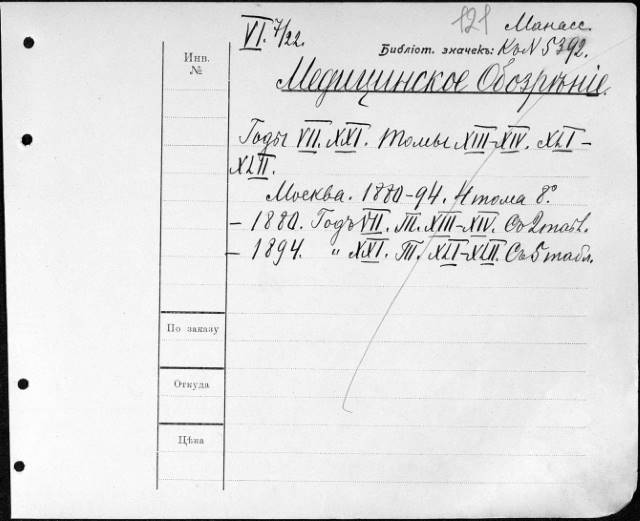 121 Манасс.
VI. 7/22.
Библіот. значекъ: КъN 5392.
Инв.
№
Медицинское Обозрѣніе.
Годы VII. XXI. Томы XIII-XIV. XLI-
XLII.
Москва. 1880-94. 4 тома 8°
- 1880. Годъ VII. Т. XIII-XIV. Съ 2 табл.
- 1894. " XXI. Т. XLI-XLII. Съ 5 табл.
По заказу
Откуда
Цѣна